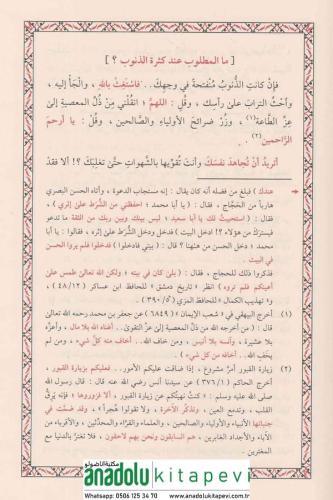 [ ما المطلوب عند كثرة الذنوب ؟ ]
فإن كانتِ الذُّنوبُ مُنفتحةً في وجهِكَ.. فاستَغِثْ باللهِ ، والْجَأْ إليه ،
وآحْثُ الترابَ علىٰ رأسِكَ ، وقُلِ : اللهمَّ ؛ انقُلْني مِنْ ذُلِّ المعصيةِ إلىٰ
عِزِّ الطَّاعةِ(١) ، وزُرْ ضرائحَ الأولياءِ والصَّالحين ، وقُلْ : يا أرحمَ
الرَّاحمينَ(٢) .
أتريدُ أنْ تُجاهدَ نفسَكَ وأنتَ تُقوِّيها بالشَّهواتِ حتَّىٰ تغلِبَكَ ؟! ألا فقدْ
عندك ) فبلغ من فضله أنه كان يقال : إنه مستجاب الدعوة ، وأتاه الحسن البصري
هارباً من الحجاج ، فقال : ( يا أبا محمد ؛ احفظني من الشرط علىٰ إثري ) ،
فقال : ( استحييتُ لك يا أبا سعيد ؛ ليس بينك وبين ربك من الثقة ما تدعو
فيسترك من هؤلاء ؟! ادخل البيت ) فدخل ودخل الشرط علىٰ إثره ، فقالوا : يا أبا
محمد ؛ دخل الحسن من هٰهنا ؟ قال : ( بيتي فادخلوا ) فدخلوا فلم يروا الحسن
في البيت .
فذكروا ذلك للحجاج ، فقال : ( بلىٰ كان في بيته ؛ ولكن الله تعالىٰ طمس علىٰ
أعينكم فلم تروه ) انظر « تاريخ دمشق » للحافظ ابن عساكر ( ٤٨/١٢ )
و« تهذيب الكمال » للحافظ المزي ( ٣٩٠/٥ ) .
(١) أخرج البيهقي في « شعب الإيمان » ( ٦٨٤٩ ) عن جعفر بن محمد رحمه الله تعالىٰ
قال : ( من أخرجه الله من ذل المعصية إلىٰ عز التقوىٰ.. أغناه الله بلا مال ، وأعزَّه
بلا عشيرة ، وآنسه بلا أنيس ، ومن خاف الله.. أخاف الله منه كلَّ شيء ، ومن لم
يخف الله.. أخافه من كل شيء ) .
(٢) زيارة القبور أمرٌ مشروع ، إذا ضاقت عليكم الأمور.. فعليكم بزيارة القبور ،
أخرج الحاكم ( ٣٧٦/١ ) عن سيدنا أنس رضي الله عنه قال : قال رسول الله
صلى الله عليه وسلم : « كنت نهيتكم عن زيارة القبور ، ألا فزوروها ؛ فإنه يرقُّ
القلب ، وتدمع العين ، وتذكر الآخرة ، ولا تقولوا هُجراً » ، وقد ضمَّت في
جنباتها الأنبياء والأولياء والصالحين ، والعلماء والقرَّاء والعظماء ، والأقرباء من
الآباء والأجداد الغابرين ، هم السابقون ونحن بهم لاحقون ، فلا تغترَّ بالدنيا مع
المغترين .
مكتبة الأناضولو
anadolukitapevi
Whatsapp: 0506 125 34 70 www.anadolukitapevi.com